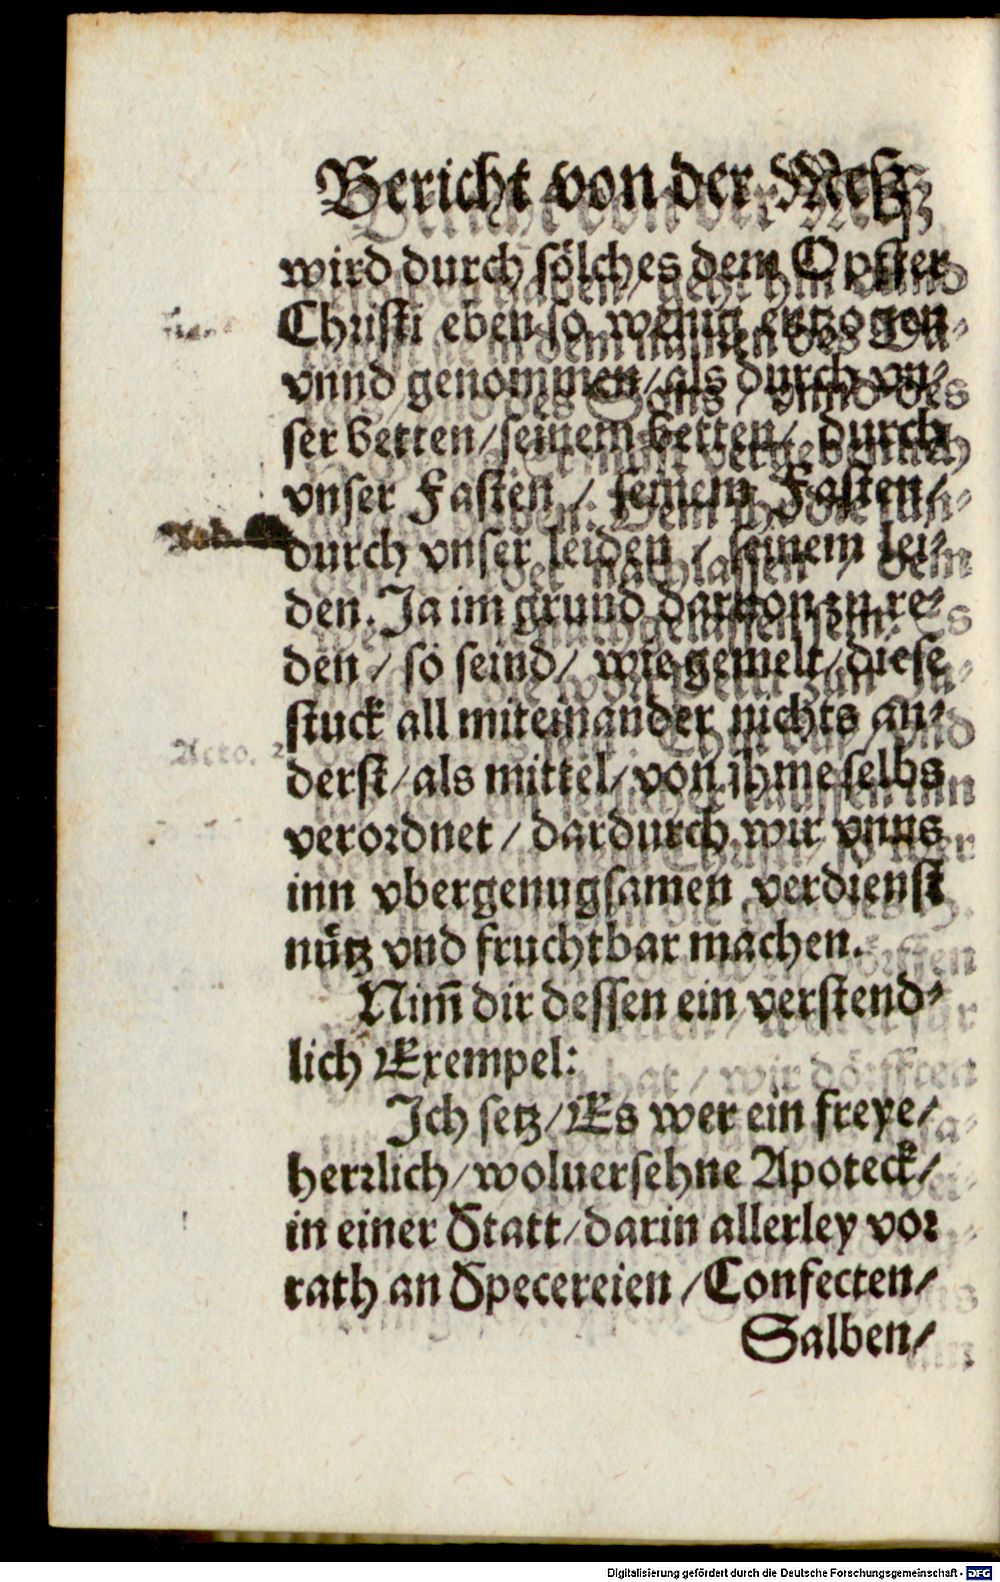 Bericht von der Meſſz
wird durch ſölches dem Opffer
Chriſti eben ſo wenig entzogen
vnnd genommen / als durch vn⸗
ſer betten / ſeinem betten / durch
vnſer Faſten / ſeinem Faſten /
durch vnſer leiden / ſeinem lei⸗
den. Ja im grund daruon zu re⸗
den / ſo ſeind / wie gemelt / dieſe
ſtuck all miteinander nichts an⸗
derſt / als mittel / von ihme ſelbs
Acto. 2
verordnet / dardurch wir vnns
inn vbergenugſamen verdienſt
nütz vnd fruchtbar machen.
Nim̄ dir deſſen ein verſtend⸗
lich Exempel:
Ich ſetz / Es wer ein freye /
herꝛlich / woluerſehne Apoteck /
in einer Statt / darin allerley voꝛ
rath an Specereien / Confecten /
Salben /
Digitalisierung gefördert durch die Deutsche Forschungsgemeinschaft - DFG